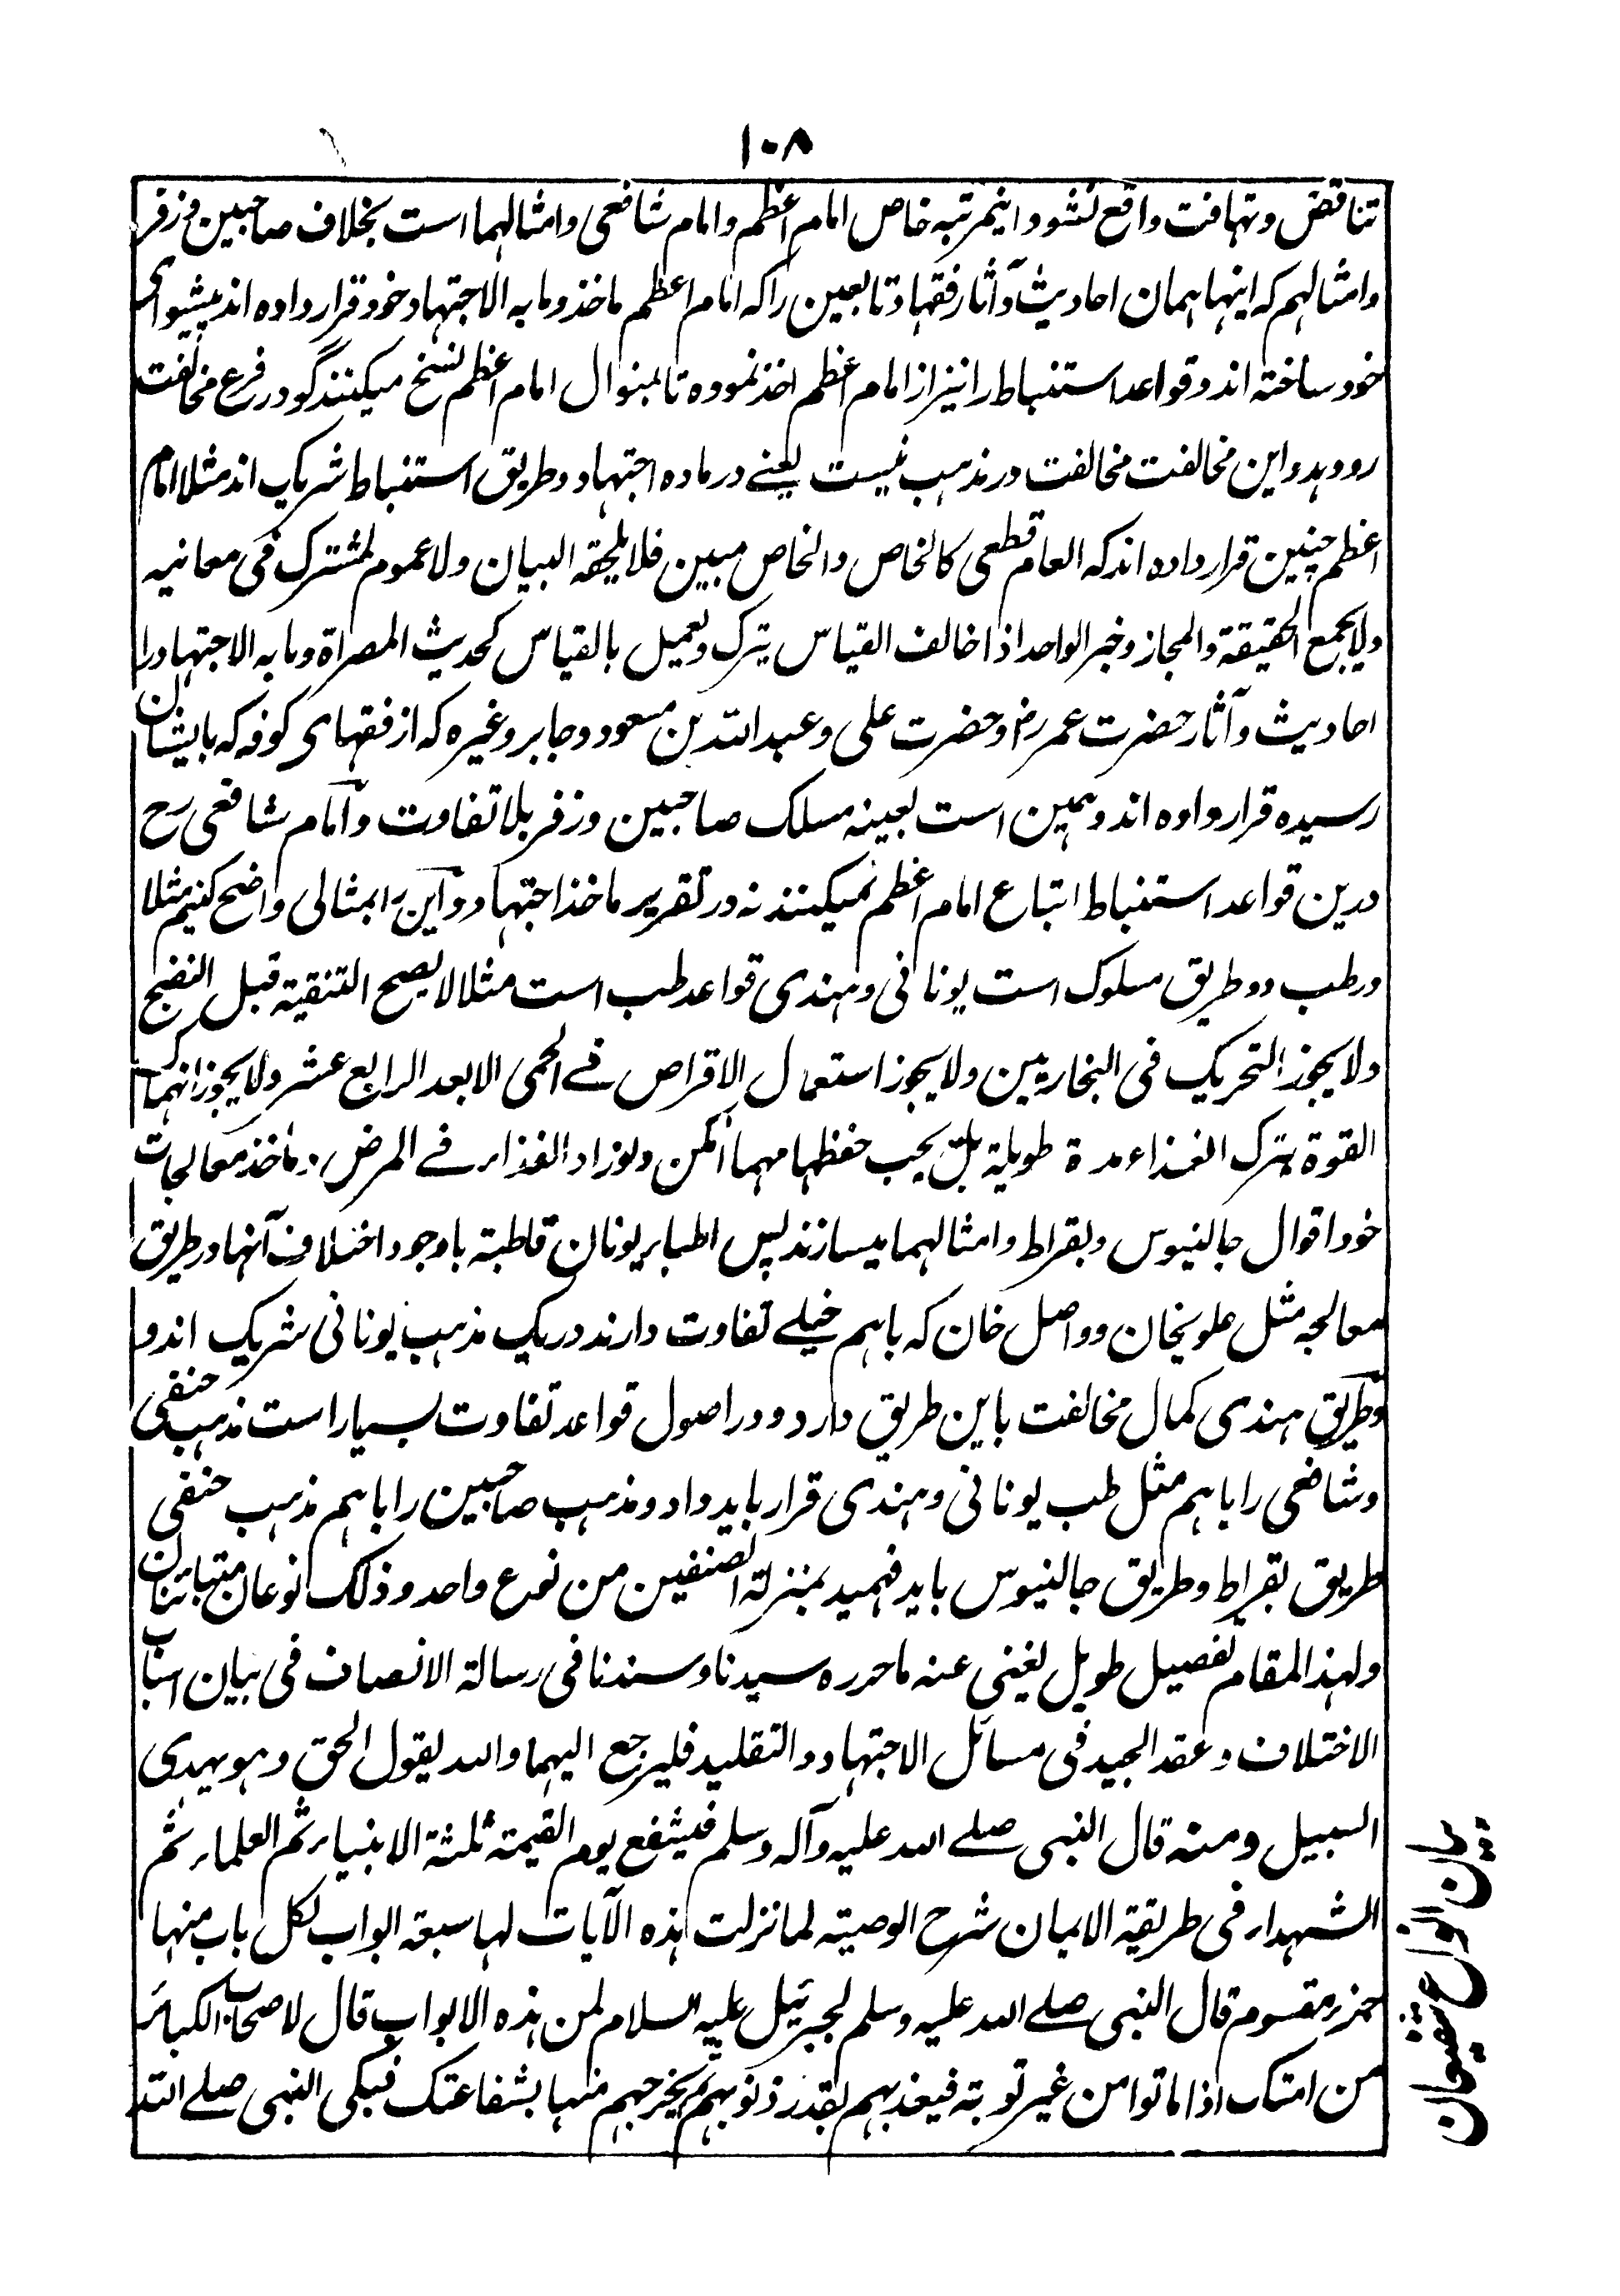 ۱۰۸
تناقض و تهافت واقع نشود و اینمرتبه خاص امام اعظم و امام شافعی و امثالهما است بخلاف صاحبین و زفر
و امثالهم که اینها همان احادیث و آثار فقها و تابعین را که امام اعظم ماخذ و ما به الاجتهاد خود قرار داده اند پیشوای
خود ساخته اند و قواعد استنباط را نیز از امام اعظم اخذ نموده تا بمنوال امام اعظم نسخ میکنند گو در فرع مخالفت
رو دهد و این مخالفت مخالفت در مذهب نیست یعنے در ماده اجتهاد و طریق استنباط شریک اند مثلا امام
اعظم چنین قرار داده اند که العام قطعی کالخاص والخاص مبین فلا یلحقه البیان ولا عموم لمشترک فی معانیه
ولا یجمع الحقیقة والمجاز و خبر الواحد اذا خالف القیاس یترک و یعمل بالقیاس کحدیث المصراة و ما به الاجتهاد را
احادیث و آثار حضرت عمر رض و حضرت علی و عبد الله بن مسعود و جابر و غیره که از فقهای کوفه که بایشان
رسیده قرار داده اند و همین است بعینه مسلک صاحبین و زفر بلا تفاوت و امام شافعی رح
درین قواعد استنباط اتباع امام اعظم نمیکنند نه در تقریر ماخذ اجتهاد و این را بمثالی واضح کنیم مثلا
در طب دو طریق مسلوک است یونانی و هندی قواعد طب است مثلا لا یصح التنقیة قبل النضج
ولا یجوز التحریک فی البخارین ولا یجوز استعمال الاقراص فے الحمی الا بعد الرابع عشر ولا یجوز انهماک
القوة بترک الغذاء مدة طویلة بل یجب حفظها مهما امکن ولو زاد الغذاء فے المرض و ماخذ معالجات
خود اقوال جالینوس و بقراط و امثالهما میسازند پس اطباء یونان قاطبة باوجود اختلاف آنها در طریق
معالجه مثل علویخان و واصل خان که باهم خیلے تفاوت دارند در یک مذهب یونانی شریک اند و
و طریق هندی کمال مخالفت باین طریق دارد و در اصول قواعد تفاوت بسیار است مذهب حنفی
و شافعی را باهم مثل طب یونانی و هندی قرار باید داد و مذهب صاحبین را باهم مذهب حنفی
طریق بقراط و طریق جالینوس باید فهمید بمنزلة الصنفین من نوع واحد و ذلک نوعان متباینان
ولهذا المقام تفصیل طویل یغنی عنه ما حرره سیدنا و سندنا فی رسالة الانصاف فی بیان اسباب
الاختلاف و عقد الجید فی مسائل الاجتهاد والتقلید فلیرجع الیهما والله یقول الحق و هو یهدی
السبیل و منه قال النبی صلے الله علیه و آله و سلم فیشفع یوم القیمة ثلثة الانبیاء ثم العلماء ثم
الشهداء فی طریقة الایمان شرح الوصیة لما نزلت هذه الآیات لها سبعة ابواب لکل باب منها
جزء مقسوم قال النبی صلے الله علیه و سلم لجبرئیل علیه السلام لمن هذه الابواب قال لاصحاب الکبائر
من امتک اذا ماتوا من غیر توبة فیعذبهم بقدر ذنوبهم ثم یخرجهم منها بشفاعتک فبکی النبی صلے الله
بیان انواع شفیعان